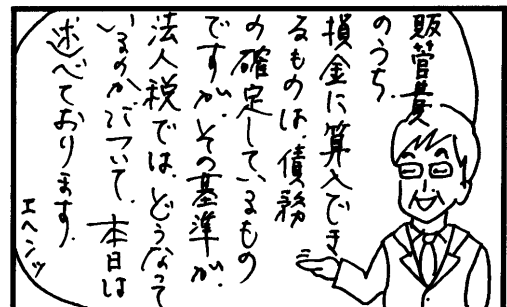 販管費
のうち、
損金に算入でき
るものは、債務
の確定しているもの
ですが、その基準が、
法人税では、どうなって
いるのか、について、本日は
述べております。
エヘンッ